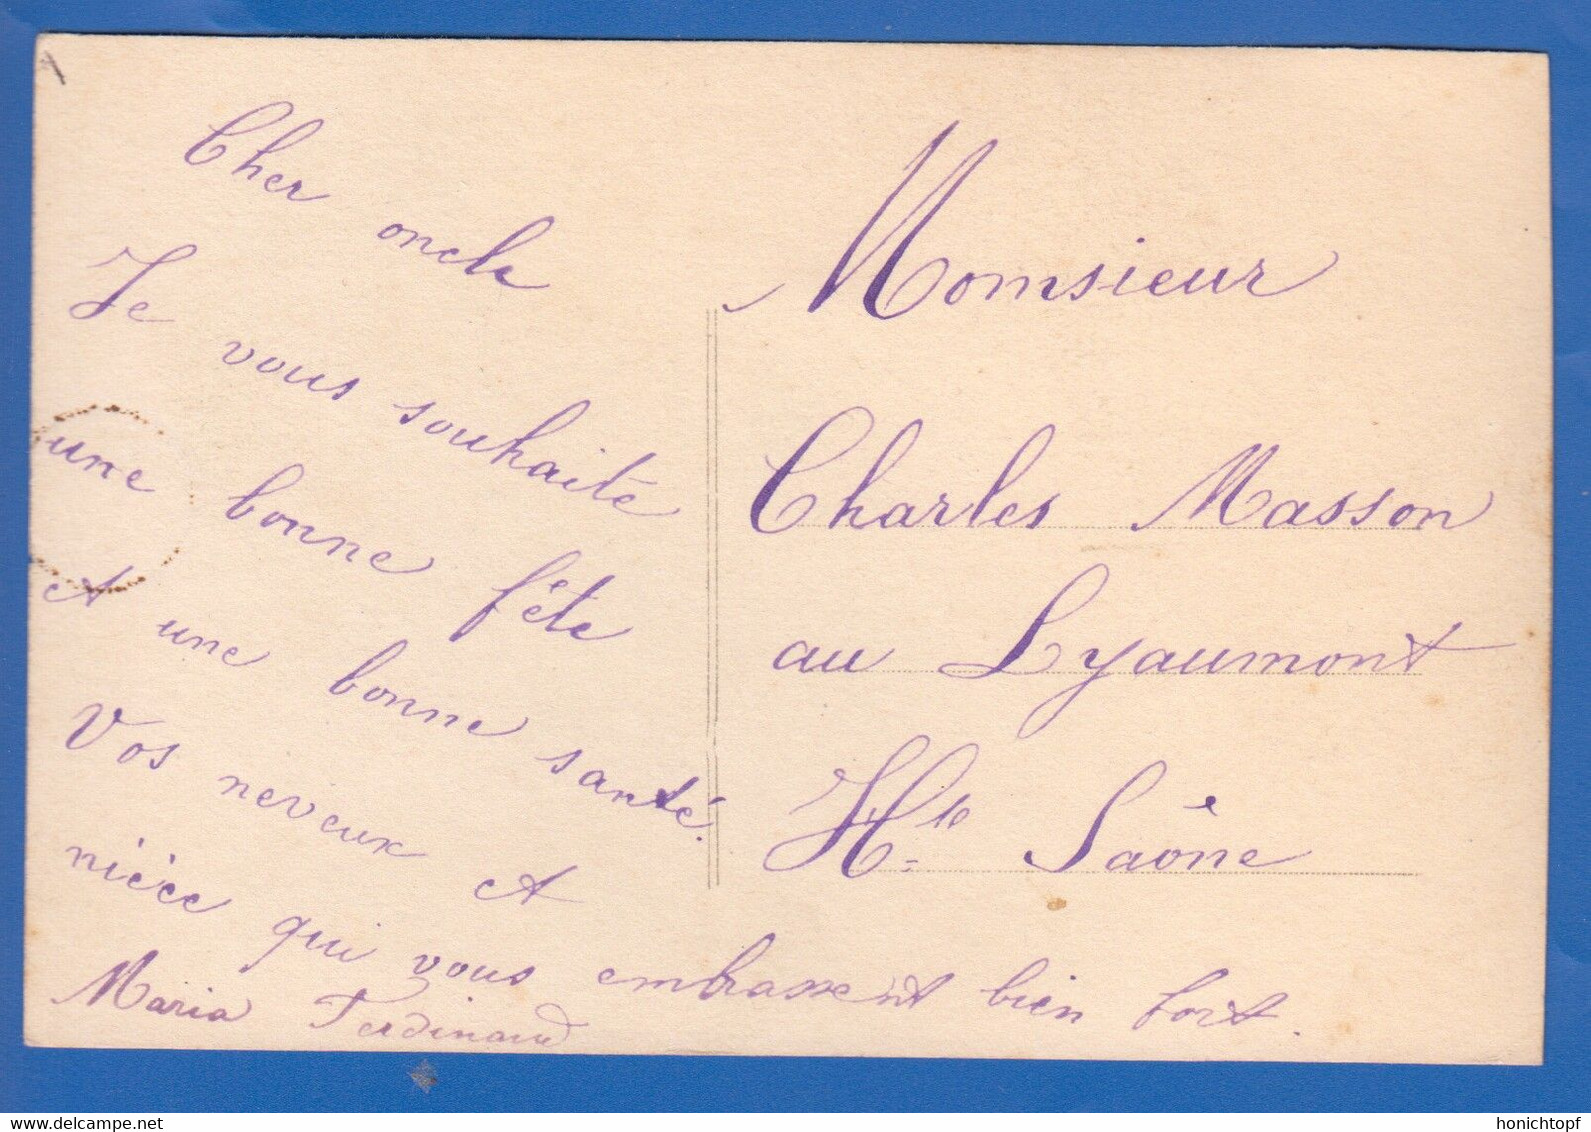 Cher oncle
Je vous souhaité
une bonne fête
et une bonne santé.
Vos neveux et
nièce qui vous embrassent bien fort.
Maria Ferdinand
Monsieur
Charles Masson
au Lyaumont
Hte Saône
www.delcampe.net
honichtopf